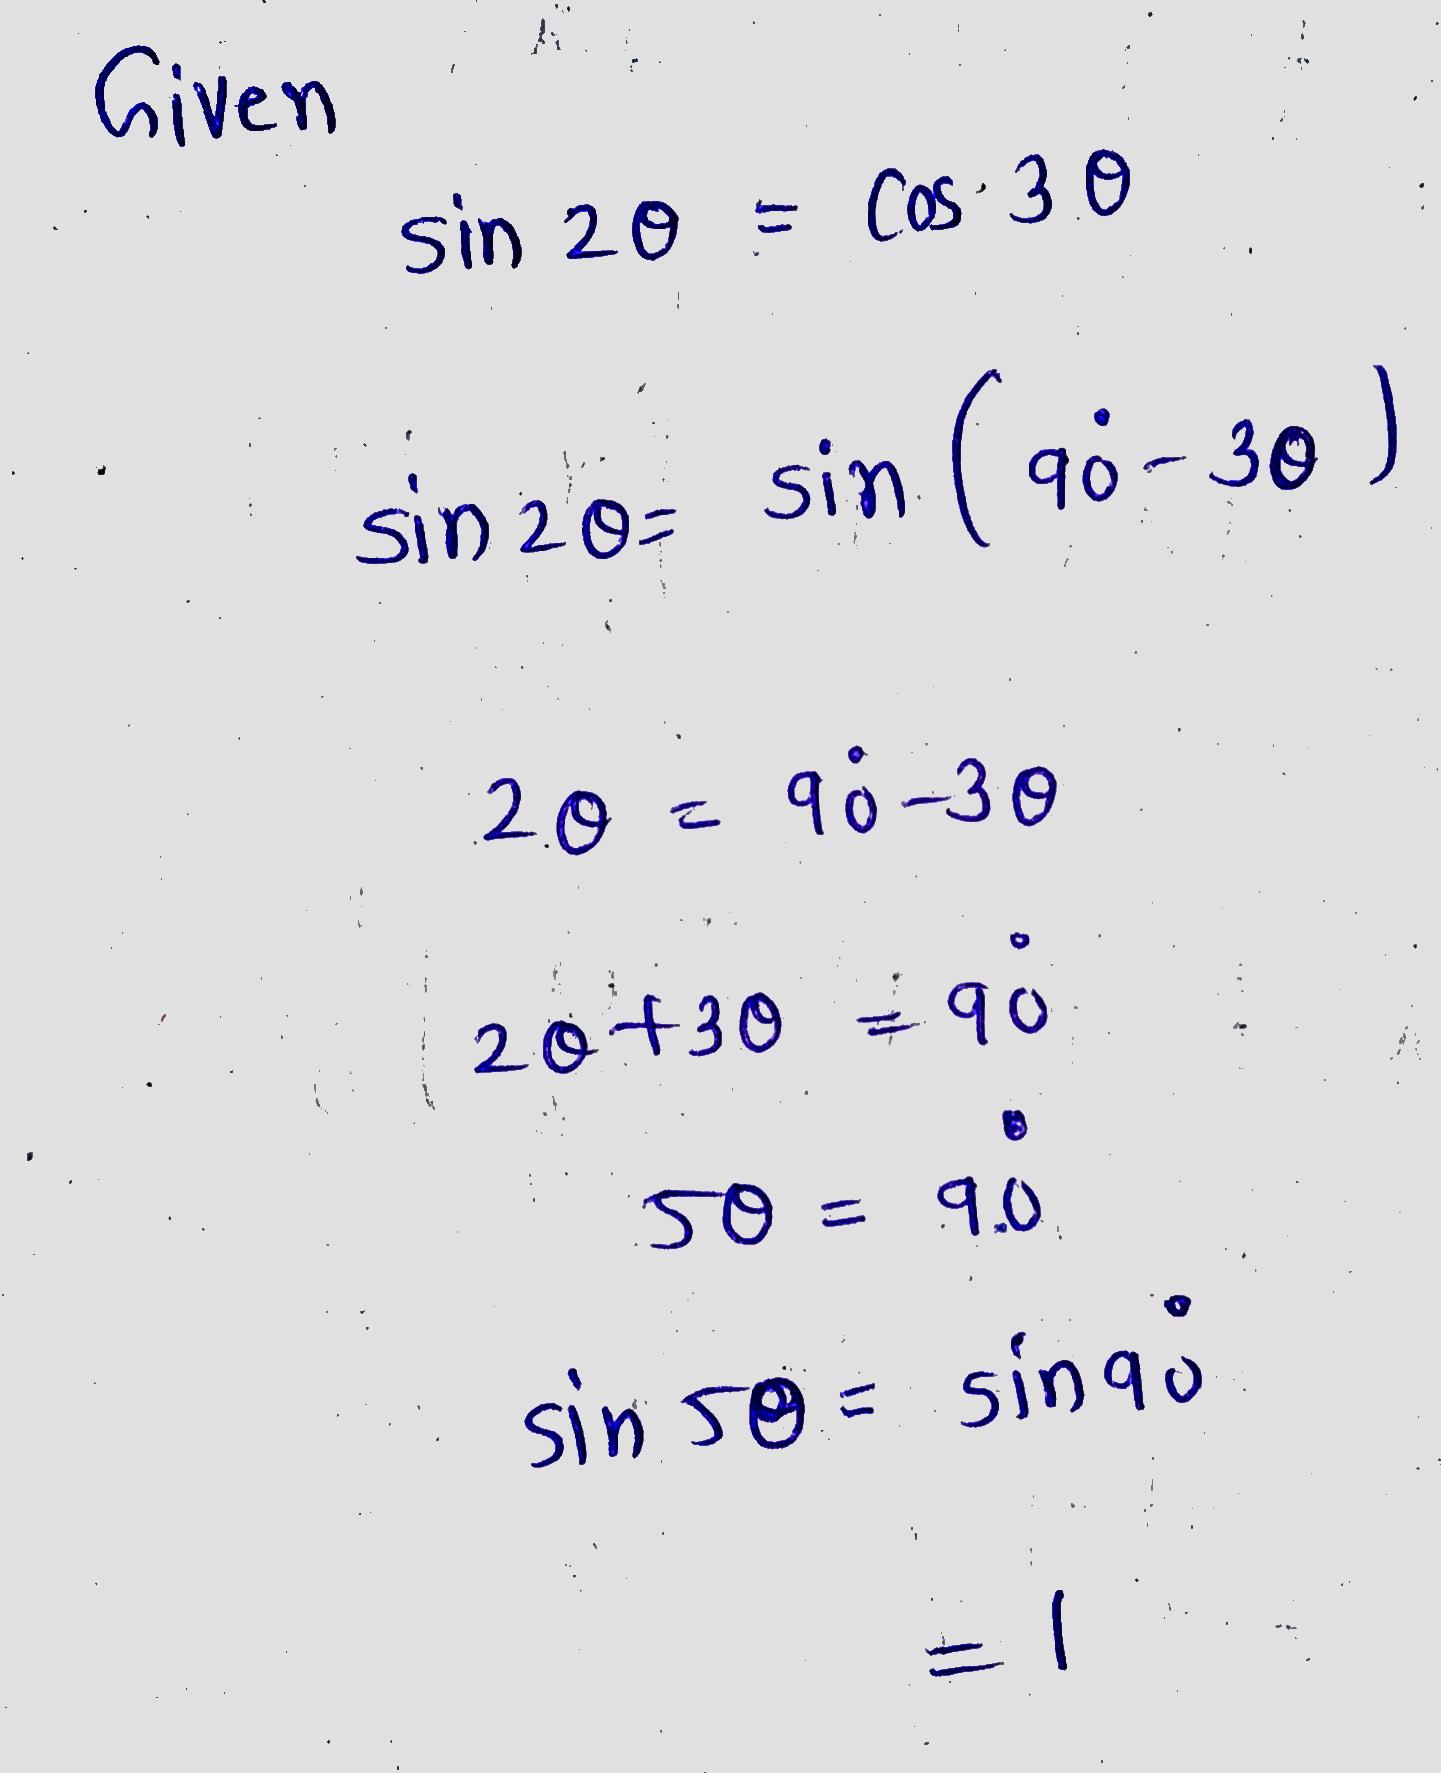 Given
sin 2θ = cos 3θ
sin 2θ = sin (90° - 3θ)
2θ = 90° - 3θ
2θ + 3θ = 90°
5θ = 90°
sin 5θ = sin 90°
= 1